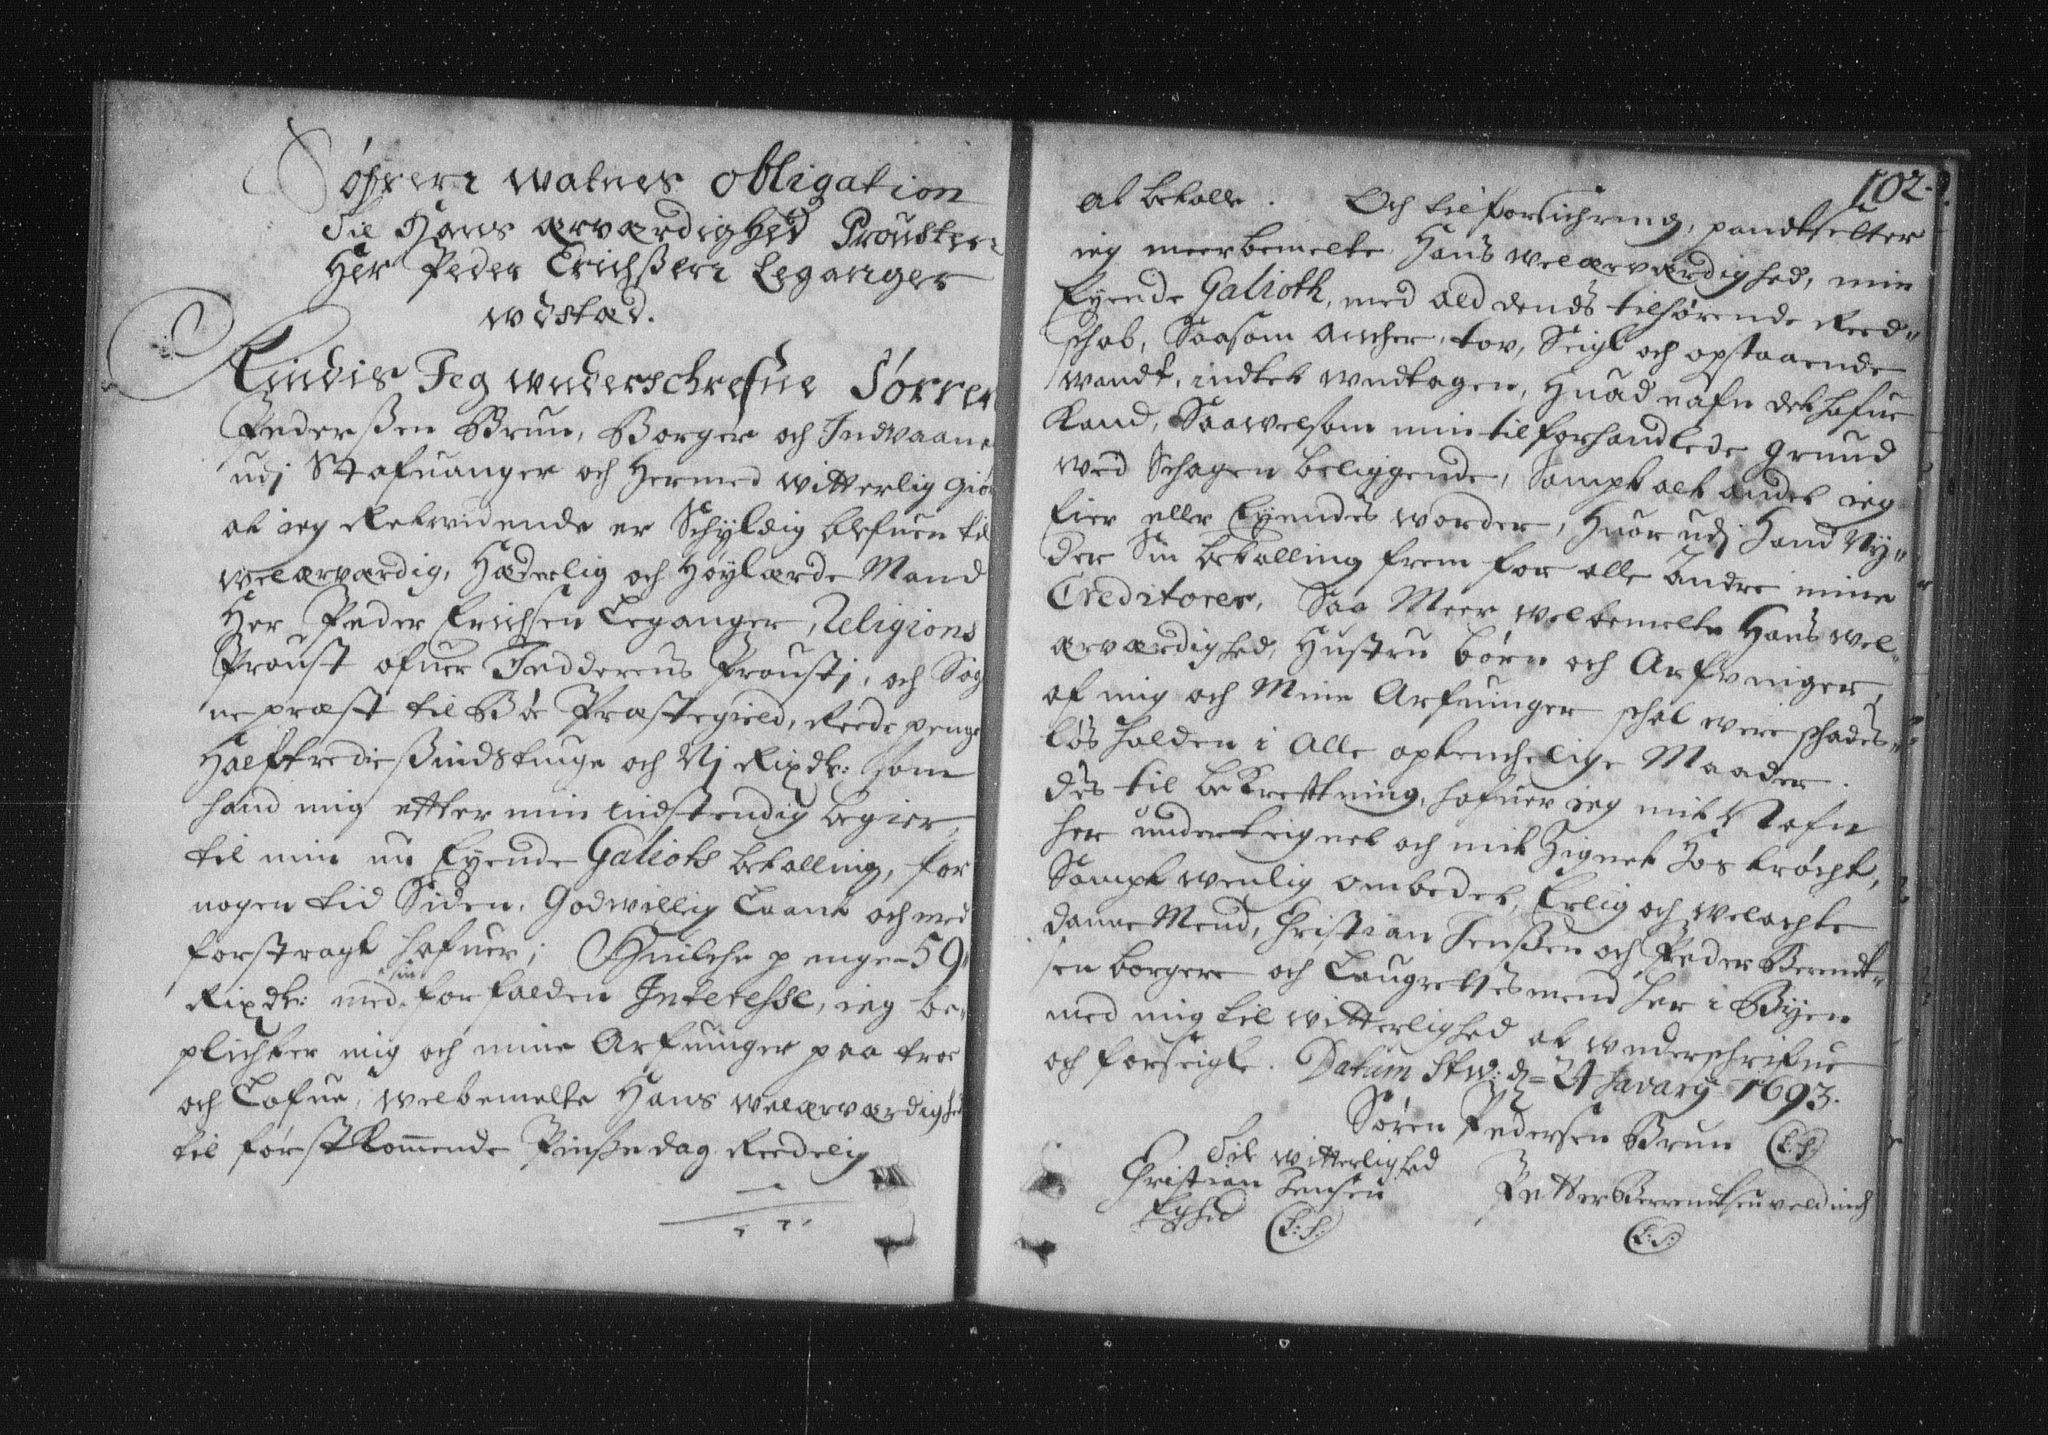 Søfren watnes obligation
til Hans ærværdighed Prousten
Her Peder Erichßen Leganger
wdstæd.
Kiendis Jeg underschrefne Sørren
Pederßen Brun, Borger och Indvaaner
udj Stafuanger och Hermed witterlig giør
at ieg Retvidende er Schyldig blefuen til
welærværdig, Hæderlig och Høylærde Mand
Her Peder Erichsen Leganger, Religions
Proust ofuer Jedderens Proustj, och Sog
nepræst til Bøe Præstegield, Reede penge
Halftrediesindstiuge och Nj Rixdr: som
hand mig etter min indstendig begier
til min nu Eyende Galiots betalling, for
nogen tid Siden, Godwillig Laant och med
forstragt hafuer; Huilche penge 59"
Rixdr: med sin forfalden Interesse, ieg be-
plichter mig och mine Arfuinger paa troe
och Lofue, welbemelte Hans welærværdighed
til først Kommende Pinßedag Reedelig
102.
at betalle. Och til forsichring, pandtsetter
ieg meerbemelte Hans welærværdighed, min
Eyende Galioth, med ald dends tilhørende Reed-
schab, Saasom Ancher, tov, Seigl och opstaaende
wandt, indtet undtagen, Huad nafn det hafue
Kand, Saawelsom min tilforhandlede grund
wed Schagen beliggende, Sampt alt andet ieg
Eier eller Eyendes worder, Huor udj Hand Ny-
der Sin betalling frem for alle Andre mine
Creditorer, Saa Meer welbemelte Hans wel-
ærværdighed, Hustru børn och Arfvinger,
af mig och Mine Arfuinger schal were schades-
løs holden i Alle optenchelige Maader.
Dis til bekreftning, hafuer ieg mit Nafn
her underteignet och mit Zignet hos trøcht,
Sampt wenlig ombedet, Erlig och welachte
danne Mend, Christian Jenßen och Peder Berndt-
sen borgere och Laugrettesmend her i Byen
med mig til witterlighed at underschrifue
och forseigle. Datum Stw: d= 24 Janvary 1693.
Søren Pedersen Brun (L:S:)
Til witterlighed
Christian Jensen
(L:S:)
Petter Berrentsen veldinch
(L:S:)